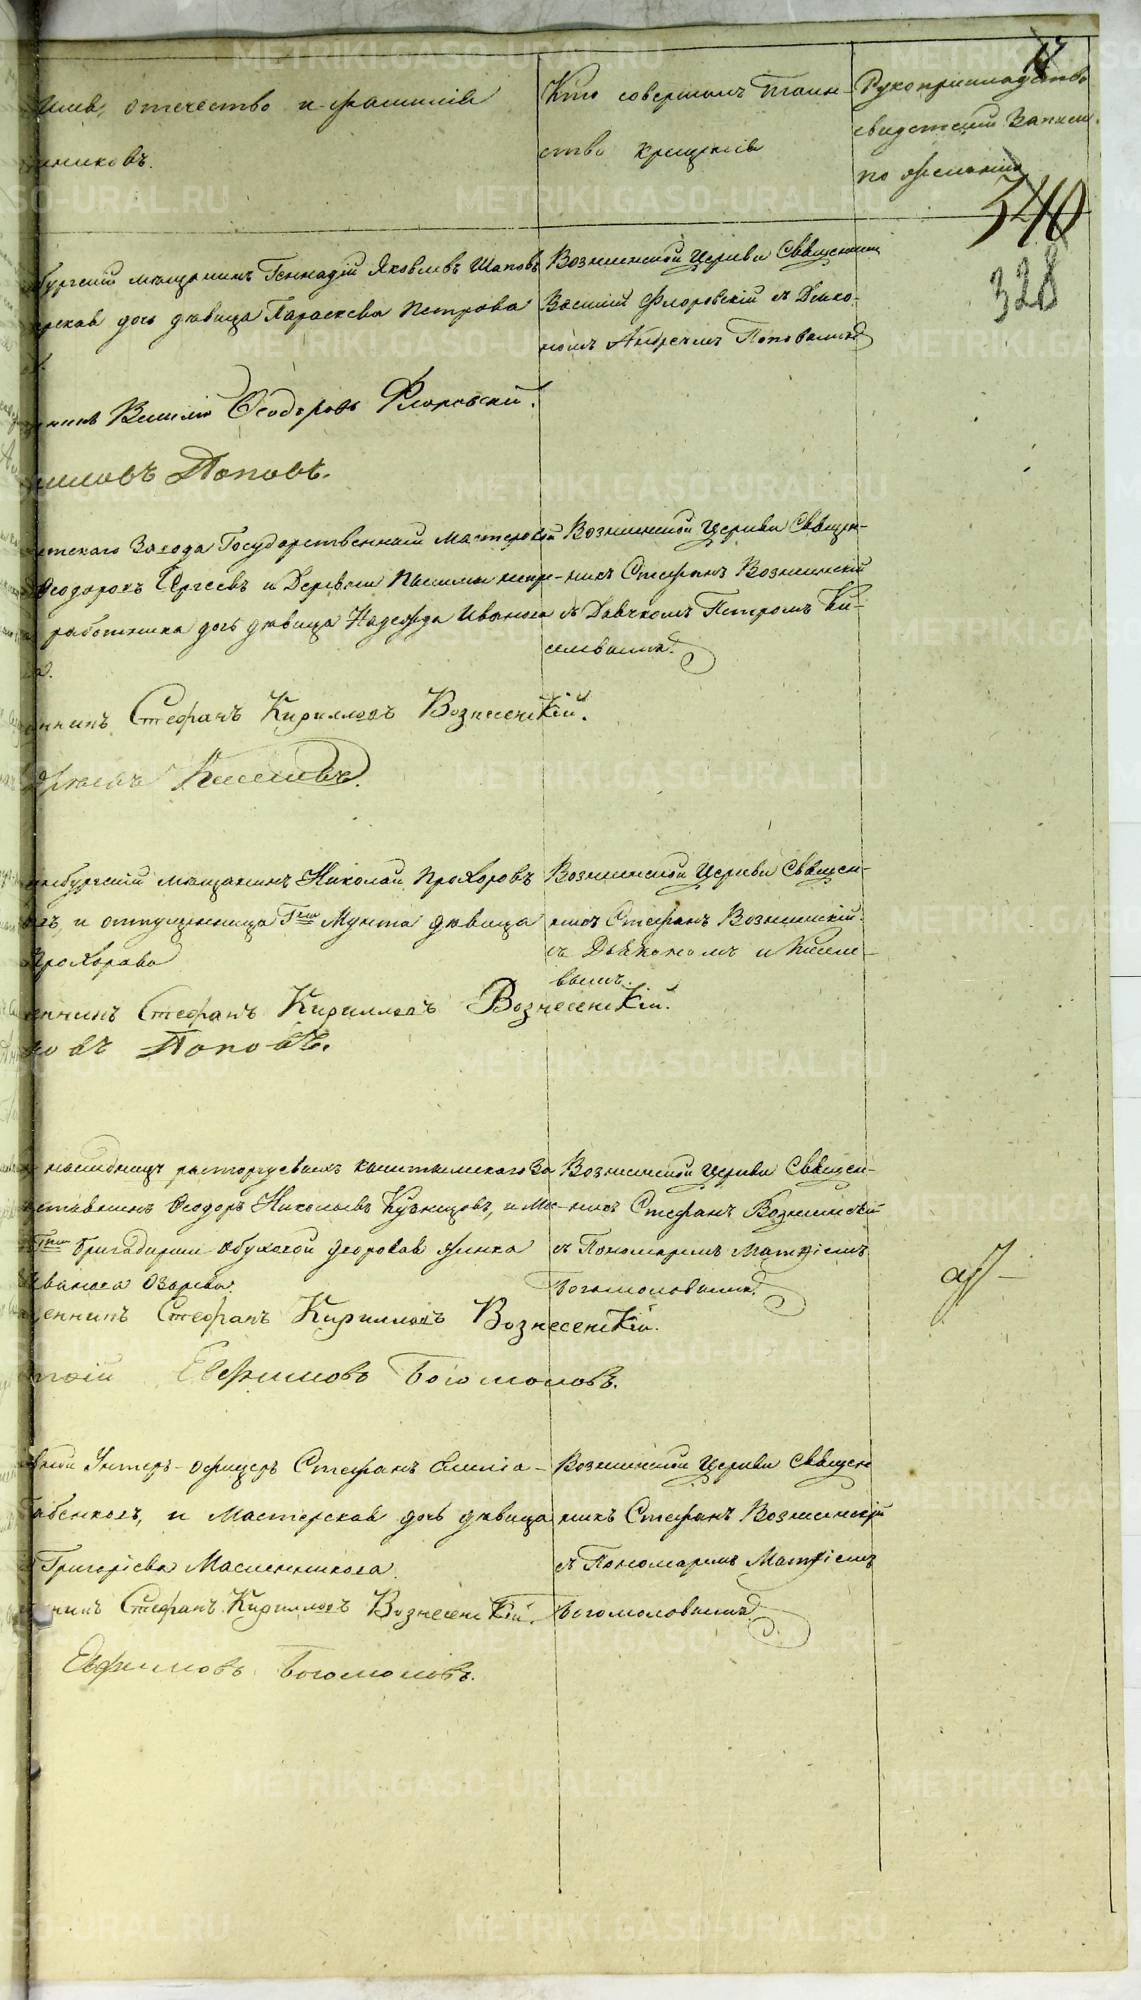 Имя, отечество и фамилія
Кто совершалъ таин-
ство крещенія
Рукоприкладство
свидетелей записи
по желанію
17
340
328
бургскій мѣщанинъ Геннадій Яковлевъ Шаповъ
дочь дѣвица Параскева Петрова
Вознесенской Церкви Священник
Василій Флоровскій съ Діако-
номъ Андреемъ Поповымъ
Василій Ѳеодоровъ Флоровскій.
Поповъ.
етскаго Завода Государственный мастеровой
Ѳеодоровъ Сергеевъ и Деревни
работника дочь дѣвица Надежда Иванова
Вознесенской Церкви Священ-
никъ Стефанъ Вознесенскій
съ Дьячкомъ Петромъ Ки-
селевымъ.
Стефанъ Кирилловъ Вознесенскій.
Киселевъ.
инбургскій мѣщанинъ Николай Прохоровъ
и отпущенница Гжи Мунта дѣвица
Прохорова
Вознесенской Церкви Священ-
никъ Стефанъ Вознесенскій
съ Дьякономъ и Кисле-
вымъ.
Стефанъ Кирилловъ Вознесенскій.
Поповъ.
наслѣдницъ расторгуевыхъ каштымскаго За
Ѳеодоръ Николаевъ Кузнецовъ, и
Гжи бригадирши Обуховой дворовая жинка
Иванова Озорова.
Вознесенской Церкви Священ-
никъ Стефанъ Вознесенскій
съ Пономаремъ Матѳіемъ
Богомоловымъ.
Стефанъ Кирилловъ Вознесенскій.
Евфимовъ Богомоловъ.
Унтеръ-офицеръ Стефанъ
и Мастерская дочь дѣвица
Григоріева Масленникова.
Вознесенской Церкви Священ
никъ Стефанъ Вознесенскій
съ Пономаремъ Матѳіемъ
Богомоловымъ.
Стефанъ Кирилловъ Вознесенскій.
Евфимовъ Богомоловъ.
METRIKI.GASO-URAL.RU